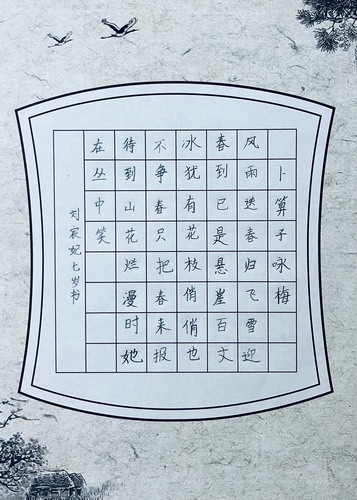 卜算子咏梅
风雨送春归飞雪迎
春到已是悬崖百丈
冰犹有花枝俏俏也
不争春只把春来报
待到山花烂漫时她
在丛中笑
刘宸妃七岁书